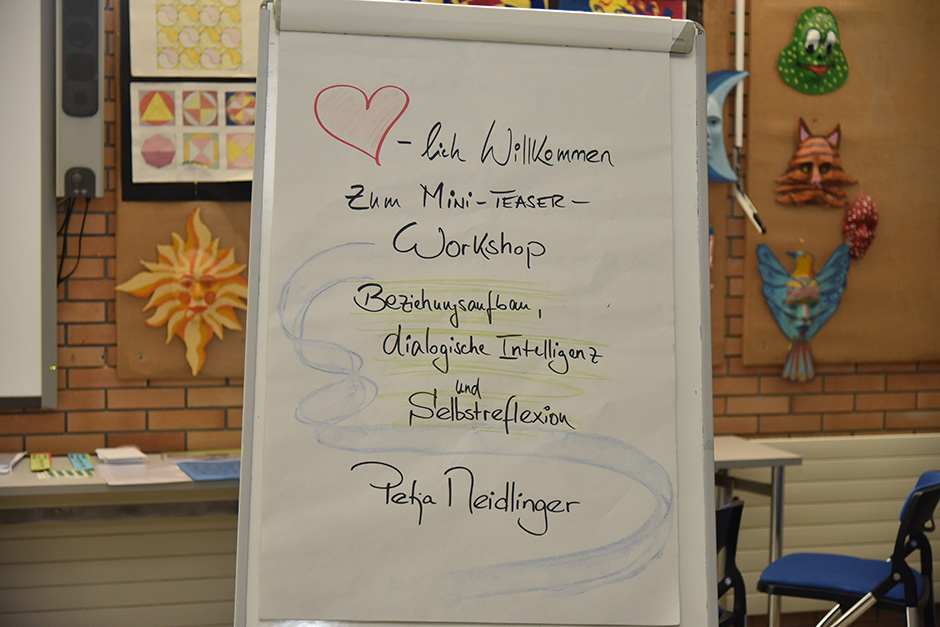 -lich Willkommen
Zum Mini-Teaser-
Workshop
Beziehungsaufbau,
dialogische Intelligenz
und
Selbstreflexion
Petja Neidlinger